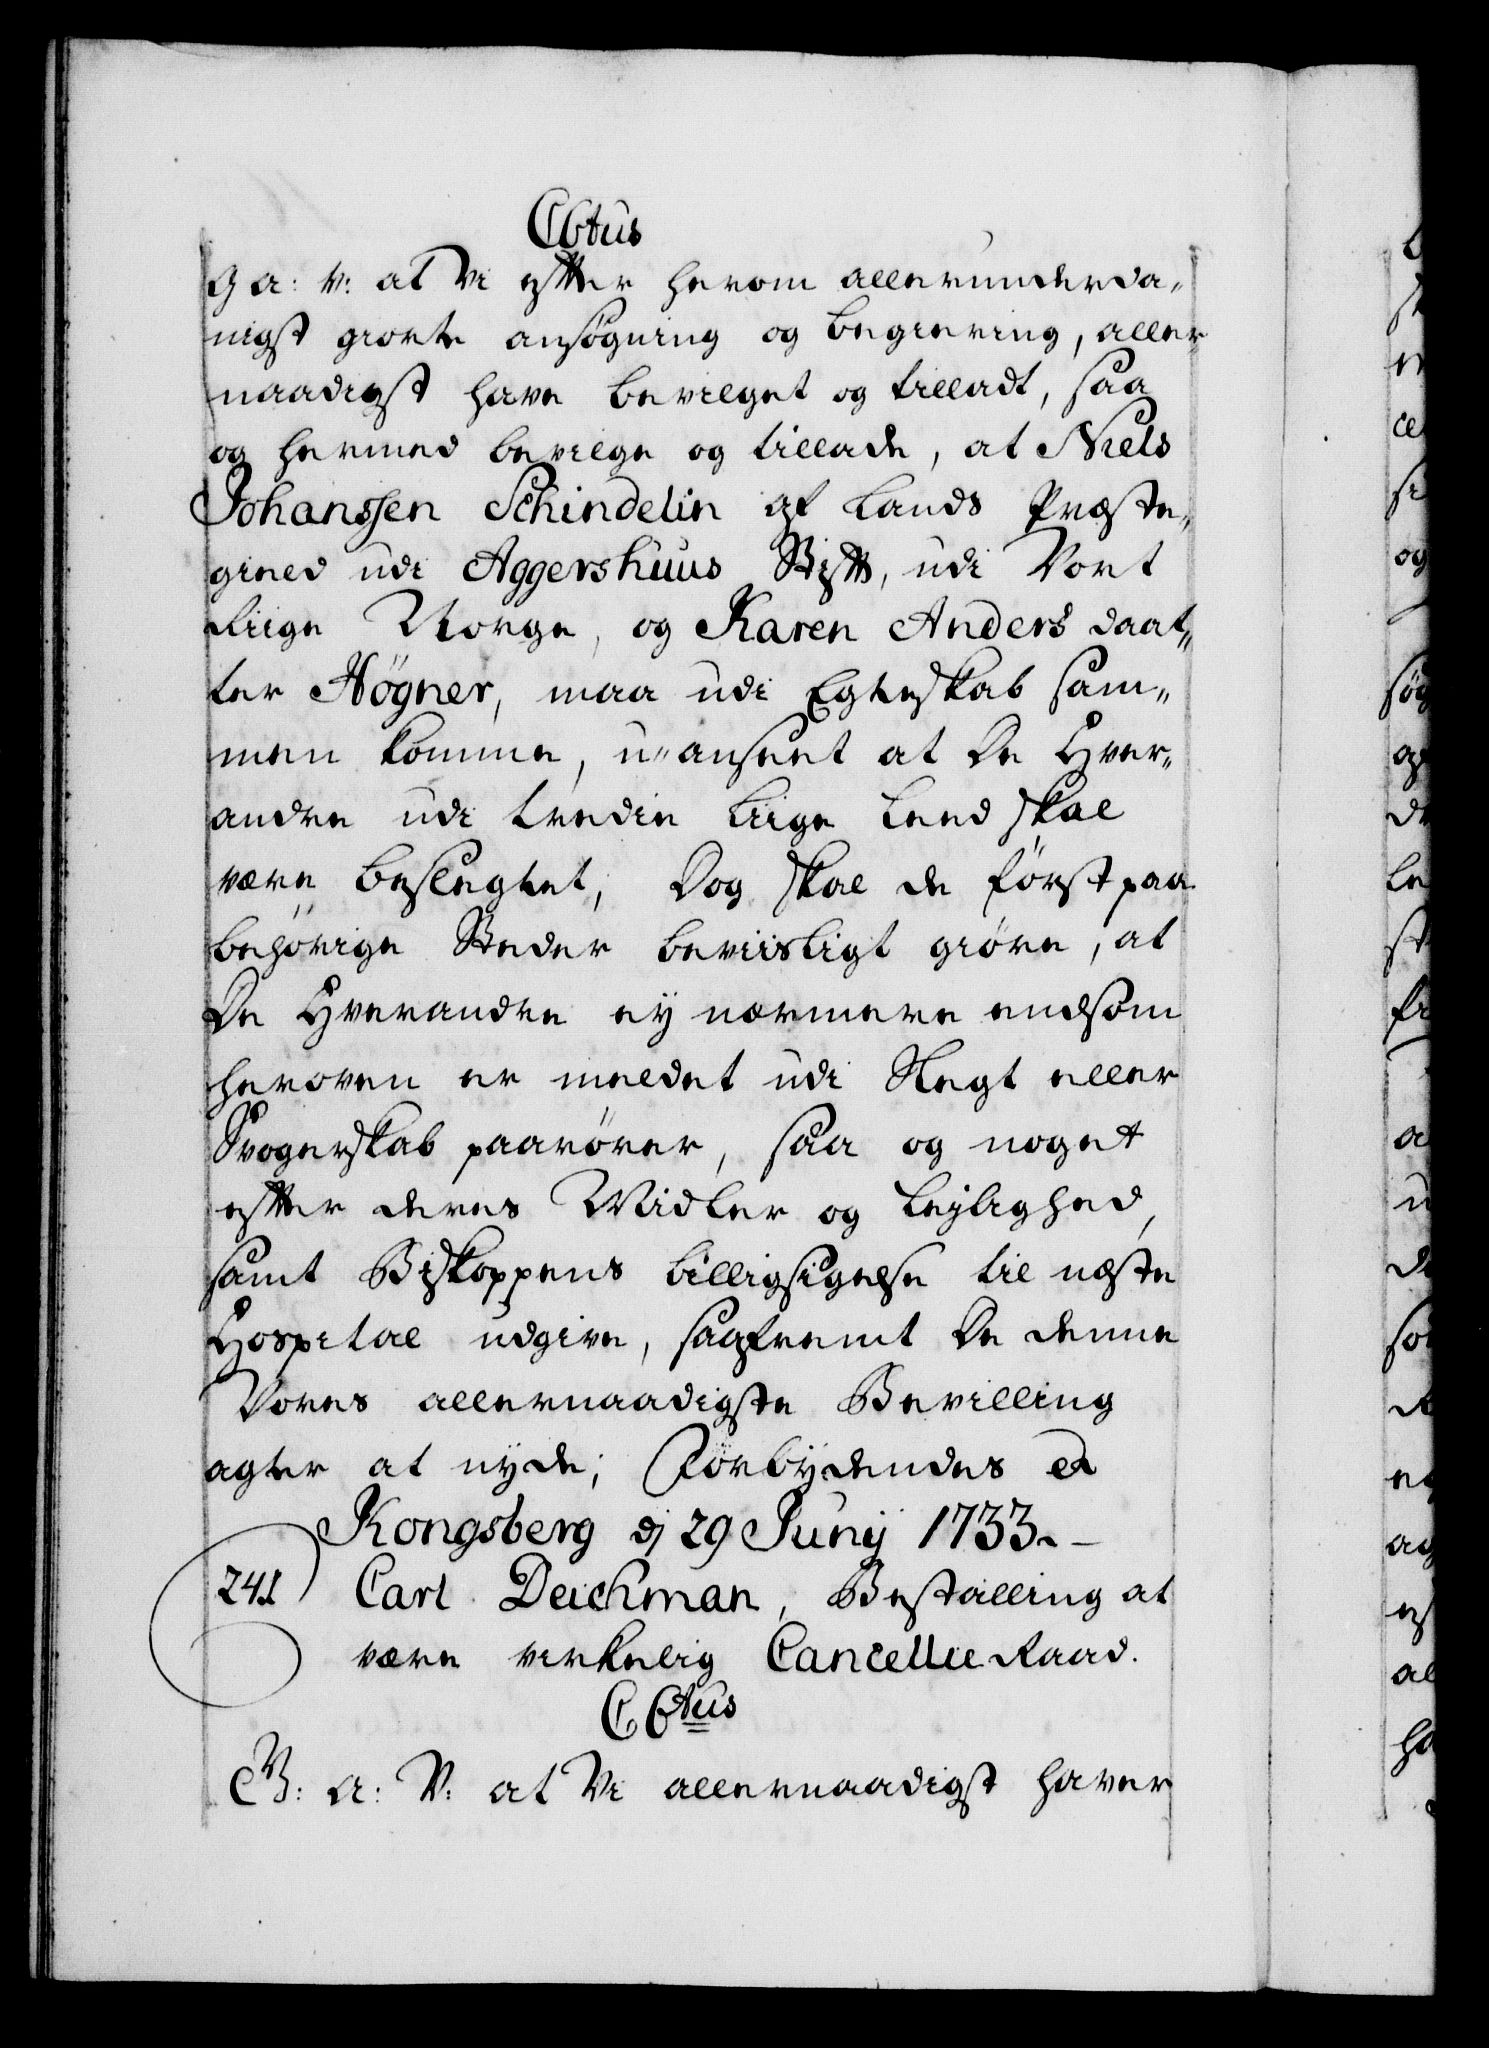 C6tus
G a: V: at Vi efter herom allerunderda„
nigst giorte ansøgning og begiering, aller
naadigst have bevilget og tilladt, saa
og hermed bevilge og tillade, at Niels
Johanssen Schindelin af Lands Præste„
gield udi Aggershuus Stift, udi Vort
Riige Norge, og Karen Anders daat„
ter Högner, maa udi Egteskab sam„
men komme, u„anseet at De Hver„
andre udi tredie liige Leed skal
være beslegtet, Dog skal de først paa
behörige Steder beviisligt giøre, at
De Hverandre ey nærmere end som
heroven er meldet udi Slegt eller
Svogerskab paarører, saa og noget
efter deres Midler og leylighed,
samt Biskoppens billigsigelse til næste
Hospital udgive, saafremt De denne
Vores allernaadigste Bevilling
agter at nyde; Forbydendes &
Kongsberg dj 29 Junij 1733.
241 Carl Deichman, Bestalling at
være virkelig Cancellie Raad.
C6tus
G: A: V: at Vi allernaadigst haver